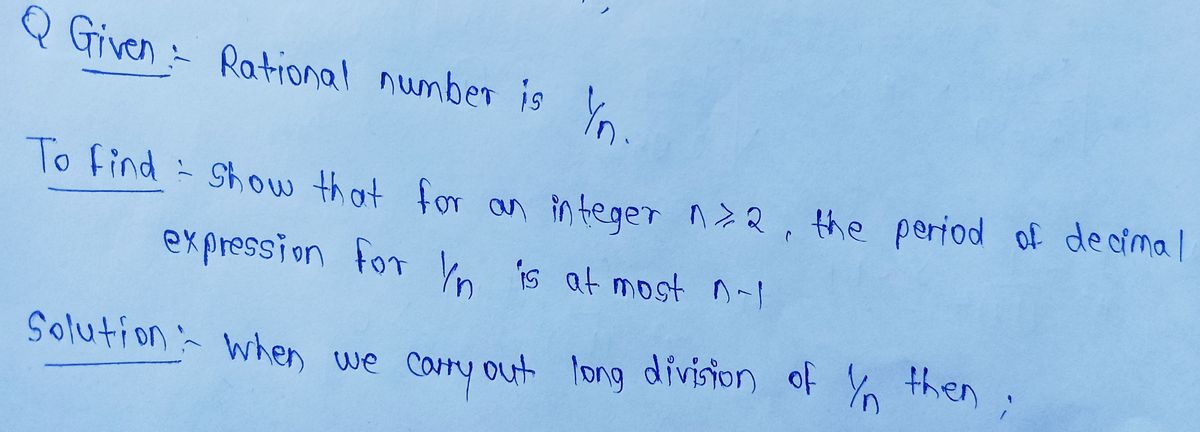 Q Given :- Rational number is 1/n.
To find :- Show that for an integer n ≥ 2, the period of decimal
expression for 1/n is at most n-1
Solution :- When we carry out long division of 1/n then ;